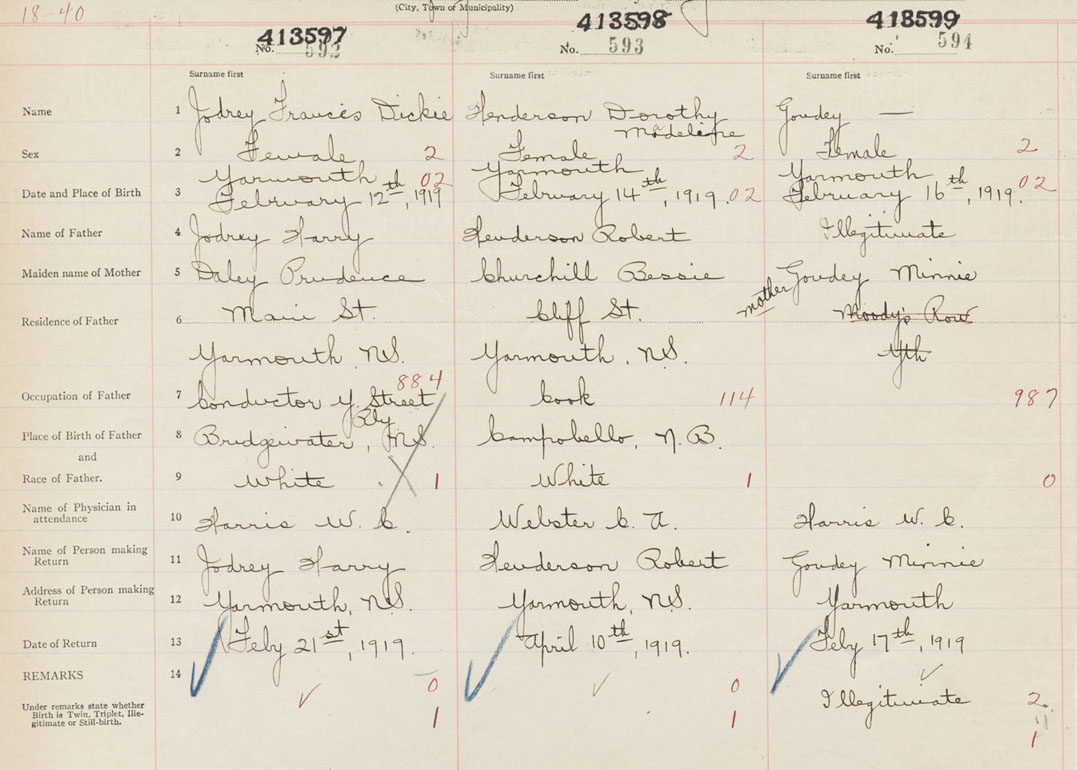 18-40
(City, Town or Municipality)
413597 413598 413599
No. 592 No. 593 No. 594
Surname first Surname first Surname first
Name 1 Jodrey Francis Dickie Henderson Dorothy Goudey —
Madeline
Sex 2 Female 2 Female 2 Female 2
Yarmouth 02 Yarmouth Yarmouth
Date and Place of Birth 3 February 12th, 1919 February 14th, 1919. 02 February 16th, 1919. 02
Name of Father 4 Jodrey Harry Henderson Robert Illegitimate
Maiden name of Mother 5 Daley Prudence Churchill Bessie Goudey Minnie
mother
Residence of Father 6 Main St. Cliff St. Moody's Row
Yarmouth, N.S. Yarmouth, N.S. Yth
884
Occupation of Father 7 Conductor Y. Street Cook 114 987
Rly
Place of Birth of Father 8 Bridgewater, N.S. Campobello, N.B.
and
Race of Father. 9 White 1 White 1 0
Name of Physician in
attendance 10 Harris W. C. Webster C. A. Harris W. C.
Name of Person making
Return 11 Jodrey Harry Henderson Robert Goudey Minnie
Address of Person making
Return 12 Yarmouth, N.S. Yarmouth, N.S. Yarmouth
Date of Return 13 Feby 21st, 1919. April 10th, 1919. Feby 17th, 1919
REMARKS 14 0 0
Under remarks state whether
Birth is Twin, Triplet, Ille-
gitimate or Still-birth.
1 1 Illegitimate 2
1